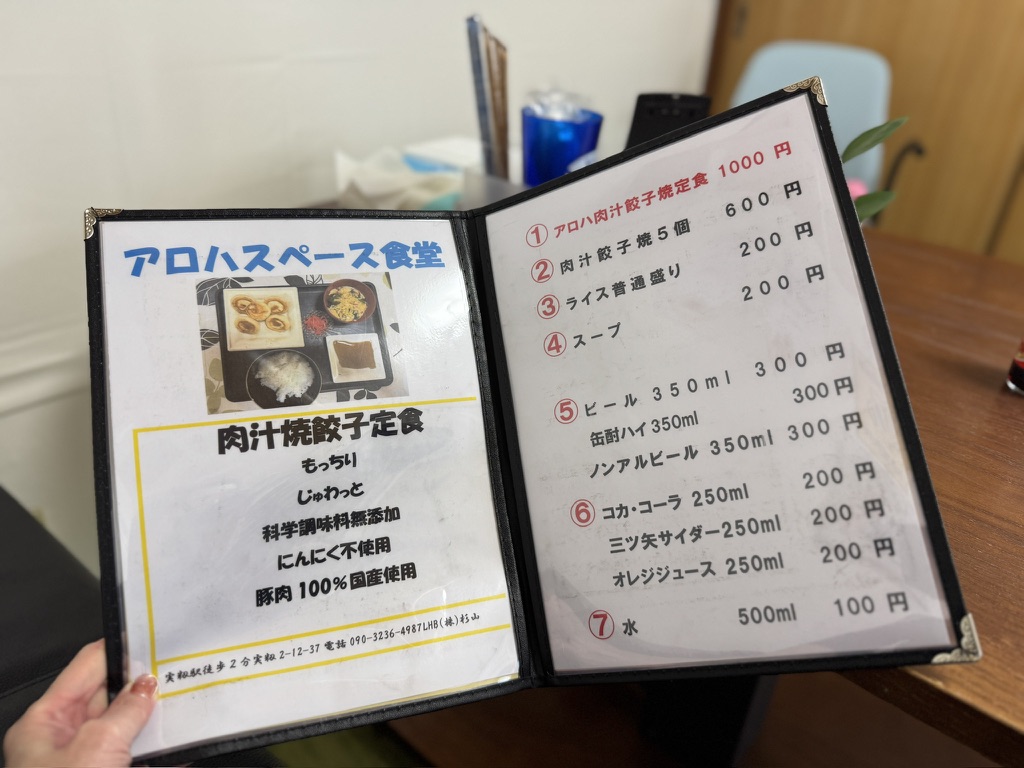 アロハスペース食堂
肉汁焼餃子定食
もっちり
じゅわっと
科学調味料無添加
にんにく不使用
豚肉100%国産使用
実籾駅徒歩2分実籾2-12-37電話090-3236-4987LHB(株)杉山
①アロハ肉汁餃子焼定食 1000円
②肉汁餃子焼5個 600円
③ライス普通盛り 200円
④スープ 200円
⑤ビール 350ml 300円
缶酎ハイ350ml 300円
ノンアルビール 350ml 300円
⑥コカ・コーラ 250ml 200円
三ツ矢サイダー250ml 200円
オレジジュース 250ml 200円
⑦水 500ml 100円